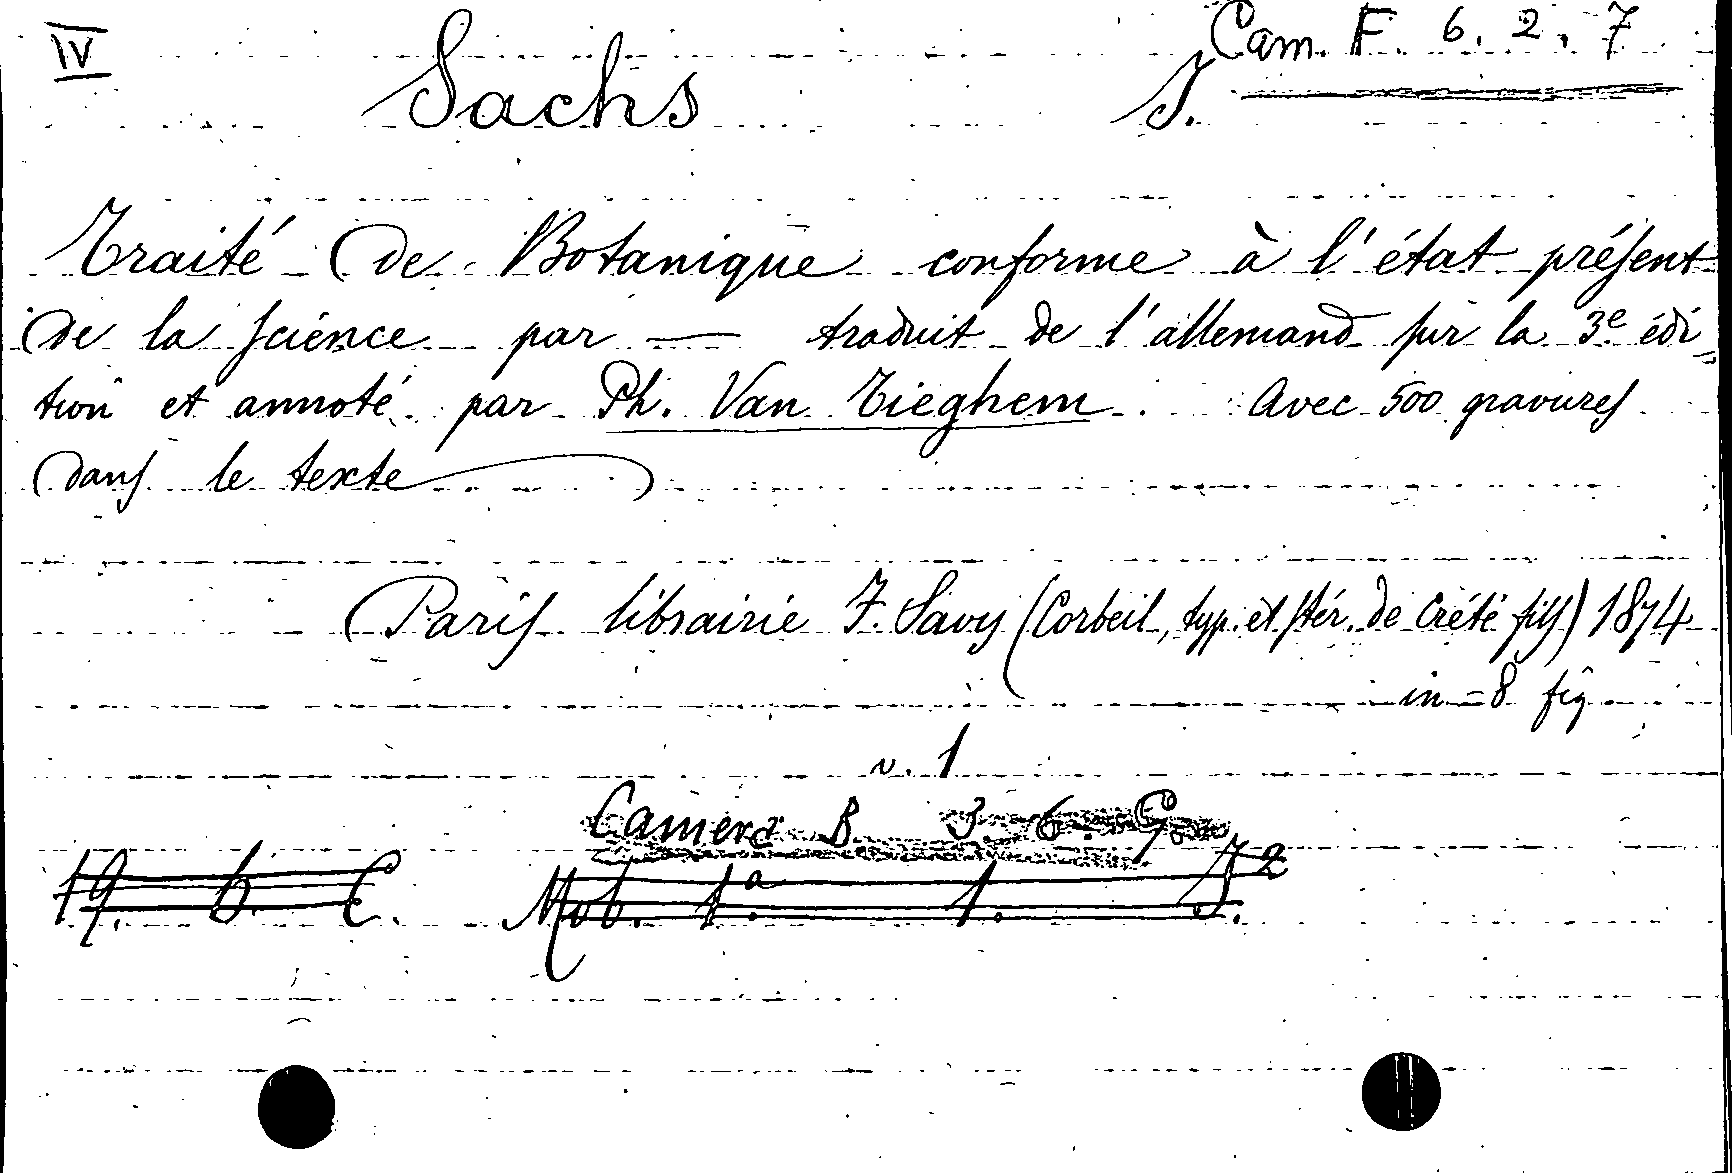 IV
Cam. F. 6. 2. 7
Sachs J.
Traité de Botanique conforme à l'état présent
de la science par — traduit de l'allemand sur la 3e édi
tion et annoté par Ph. Van Tieghem. Avec 500 gravures
dans le texte
Paris librairie F. Savy (Corbeil, typ. et stér. de Crété fils) 1874
in-8 fig
v. 1
Camera B. 3. 6. G.
19. b. C. Mob. 1a. 1. J.2